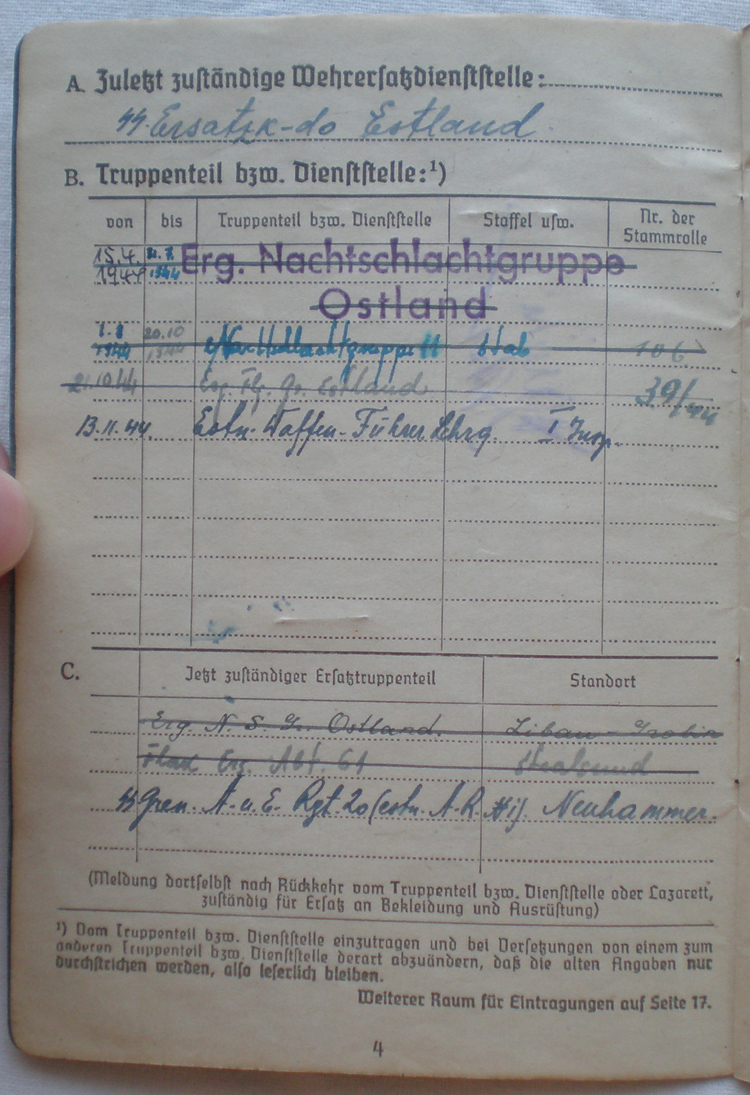 A. Zuletzt zuständige Wehrersatzdienststelle:
SS-Ersatzk-do Estland
B. Truppenteil bzw. Dienststelle:¹)
von bis Truppenteil bzw. Dienststelle Staffel usw. Nr. der Stammrolle
15.4. 1944 1944 Erg. Nachtschlachtgruppe
Ostland
1.8 1944 20.10 1944 11 Stab 106
21.10.44 Erg. Flg. Gr. Estland 39/44
13.11.44. Estn. Waffen-Führer Lehrg. I Insp.
C. Jetzt zuständiger Ersatztruppenteil Standort
Erg. N. S. Gr. Ostland. Libau-Grobin
Flak Erg. Abt. 61 Stralsund
SS Gren. A. u. E. Rgt. 20 (estn. Neuhammer.
(Meldung dortselbst nach Rückkehr vom Truppenteil bzw. Dienststelle oder Lazarett,
zuständig für Ersatz an Bekleidung und Ausrüstung)
¹) Vom Truppenteil bzw. Dienststelle einzutragen und bei Versetzungen von einem zum
anderen Truppenteil bzw. Dienststelle derart abzuändern, daß die alten Angaben nur
durchstrichen werden, also leserlich bleiben.
Weiterer Raum für Eintragungen auf Seite 17.
4